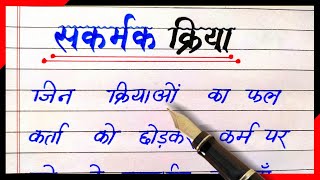 सकर्मक क्रिया
जिन क्रियाओं का फल
कर्ता को छोड़कर कर्म पर